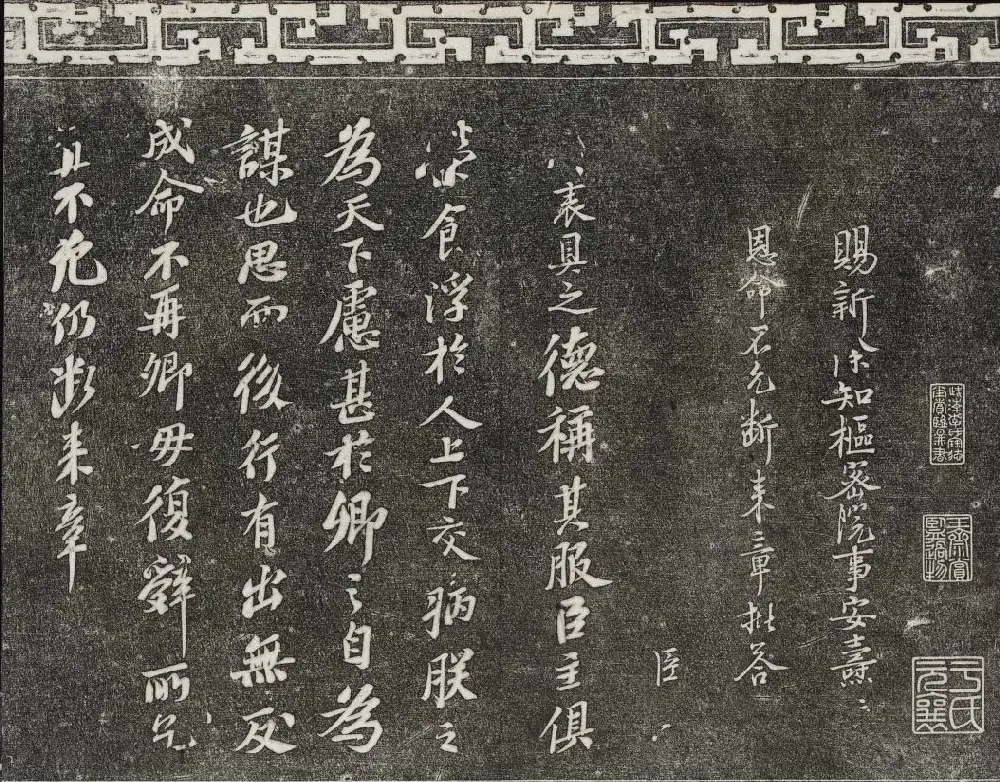 賜新除知樞密院事安燾
恩命不允斷來章批答
臣
表具之德稱其服臣主俱
榮食浮於人上下交病朕之
為天下慮甚於卿之自為
謀也思而後行有出無反
成命不再卿毋復辭所乞
宜不允仍斷來章